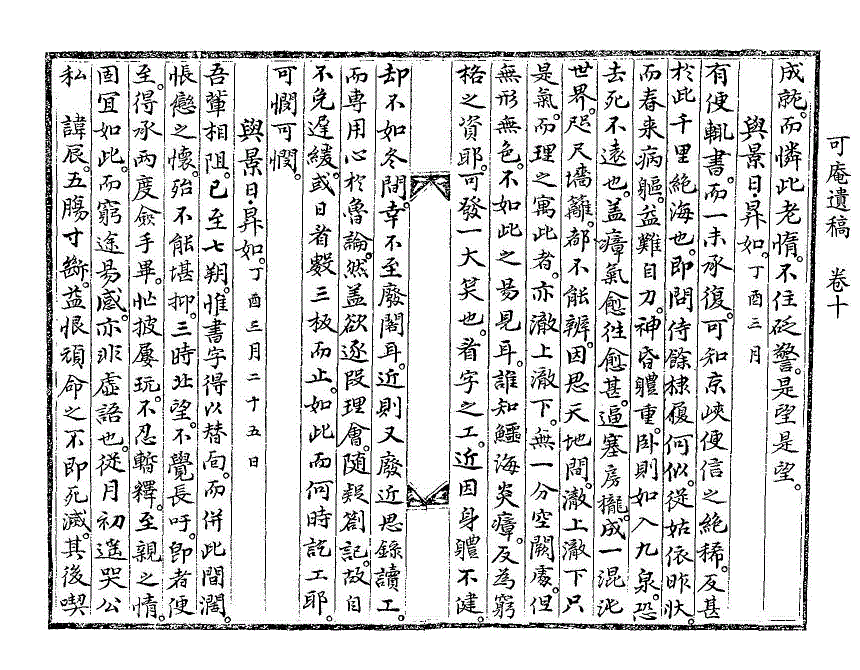 可庵遺稿　卷十
成就。而憐此老惰。不住砭警。是望是望。
與景日,昇如。丁酉三月
有便輒書。而一未承復。可知京峽便信之絶稀。反甚
於此千里絶海也。卽問侍餘棣履何似。從姑依昨狀。
而春來病軀。益難自力。神昏體重。臥則如入九泉。恐
去死不遠也。盖瘴氣愈往愈甚。逼塞房櫳。成一混沌
世界。咫尺墻籬。都不能辨。因思天地間。澈上澈下只
是氣。而理之寓此者。亦澈上澈下。無一分空闕處。但
無形無色。不如此之易見耳。誰知鱷海炎瘴。反爲窮
格之資耶。可發一大笑也。看字之工。近因身軆不健。
却不如冬間。幸不至廢閣耳。近則又廢近思錄讀工。
而專用心於魯論。然盖欲逐段理會。隨疑箚記。故自
不免遲緩。或日看數三板而止。如此而何時訖工耶。
可憫可憫。
與景日,昇如。丁酉三月二十五日
吾輩相阻。已至七朔。惟書字得以替面。而併此閒濶。
悵戀之懷。殆不能堪抑。三時北望。不覺長吁。卽者便
至。得承兩度僉手畢。忙披屢玩。不忍暫釋。至親之情。
固宜如此。而窮途易感。亦非虛語也。從月初遙哭公
私　諱辰。五膓寸斷。益恨頑命之不卽死滅。其後喫